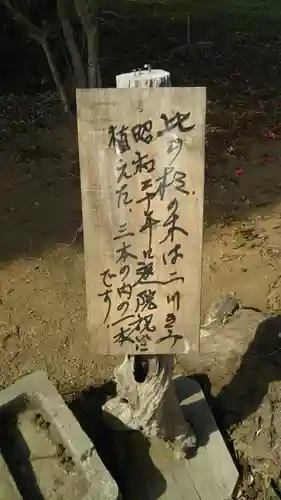 此の杉の木は二川きみ
昭和二十年に退院祝に
植えた、三本の内の一本
です。